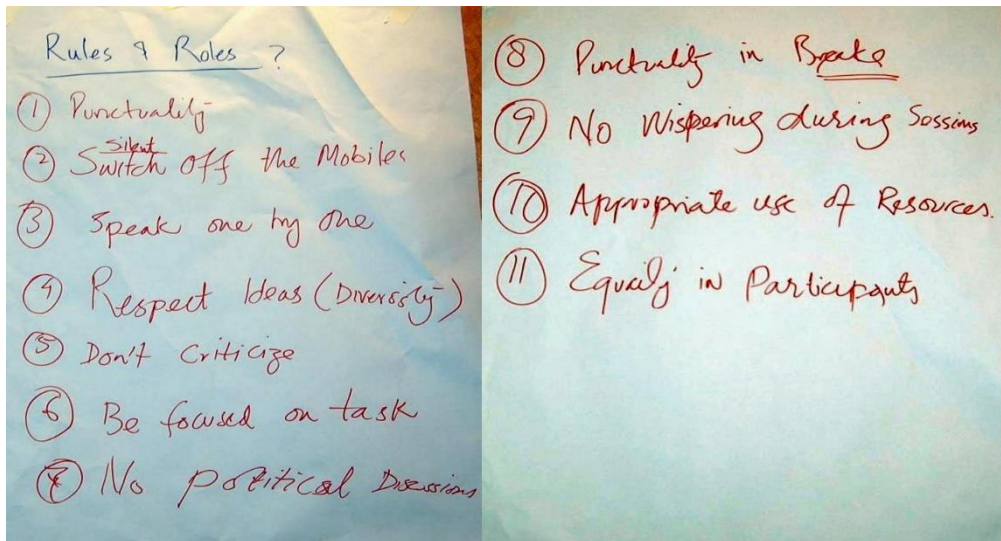 Rules & Roles ?
① Punctuality
Silent
② Switch off the Mobiles
③ Speak one by one
④ Respect Ideas (Diversity)
⑤ Don't Criticize
⑥ Be focused on task
⑦ No political Discussions
⑧ Punctuality in Breake
⑨ No Wispering during Sessions
⑩ Appropriate use of Resources.
⑪ Equaily in Participants